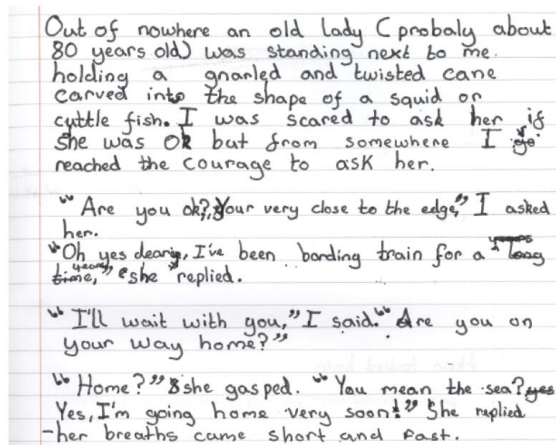 Out of nowhere an old lady (probaly about
80 years old) was standing next to me.
holding a gnarled and twisted cane
carved into the shape of a squid or
cyttle fish. I was scared to ask her if
she was Ok but from somewhere I
reached the courage to ask her.
"Are you ok?, Your very close to the edge," I asked
her.
"Oh yes dearie, I've been bording train for a
years," she replied.
"I'll wait with you," I said. "Are you on
your way home?"
"Home?" she gasped. "You mean the sea?
Yes, I'm going home very soon!" She replied
-her breaths came short and fast.